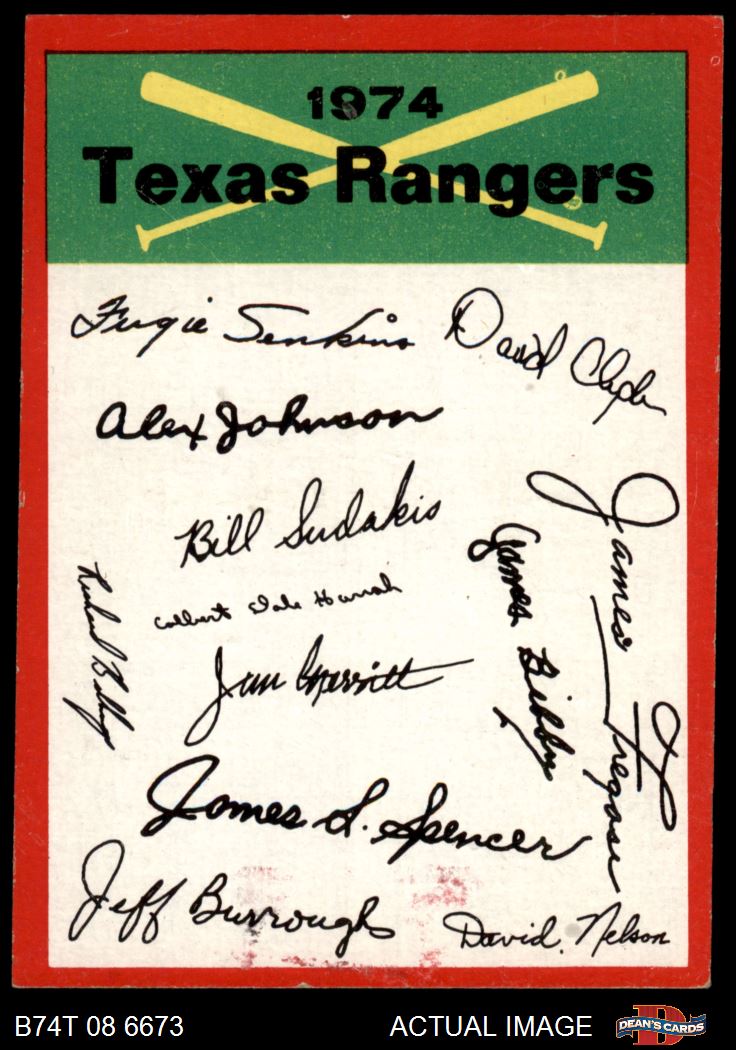 1974
Texas Rangers
Fergie Jenkins
David Clyde
Alex Johnson
Bill Sudakis
James Fregosi
James Bibby
Richard Billings
Jim Merritt
James L. Spencer
Jeff Burroughs
David Nelson
B74T 08 6673
ACTUAL IMAGE
D
DEAN'S CARDS